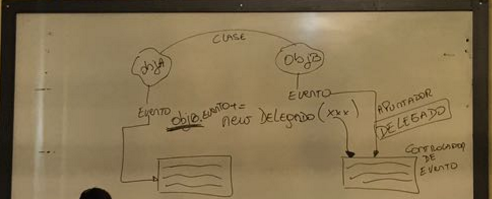 CLASE
ObjA
ObjB
EVENTO
EVENTO
ObjB.EVENTO+=
new DELEGADO (xxx)
APUNTADOR
DELEGADO
CONTROLADOR
DE
EVENTO